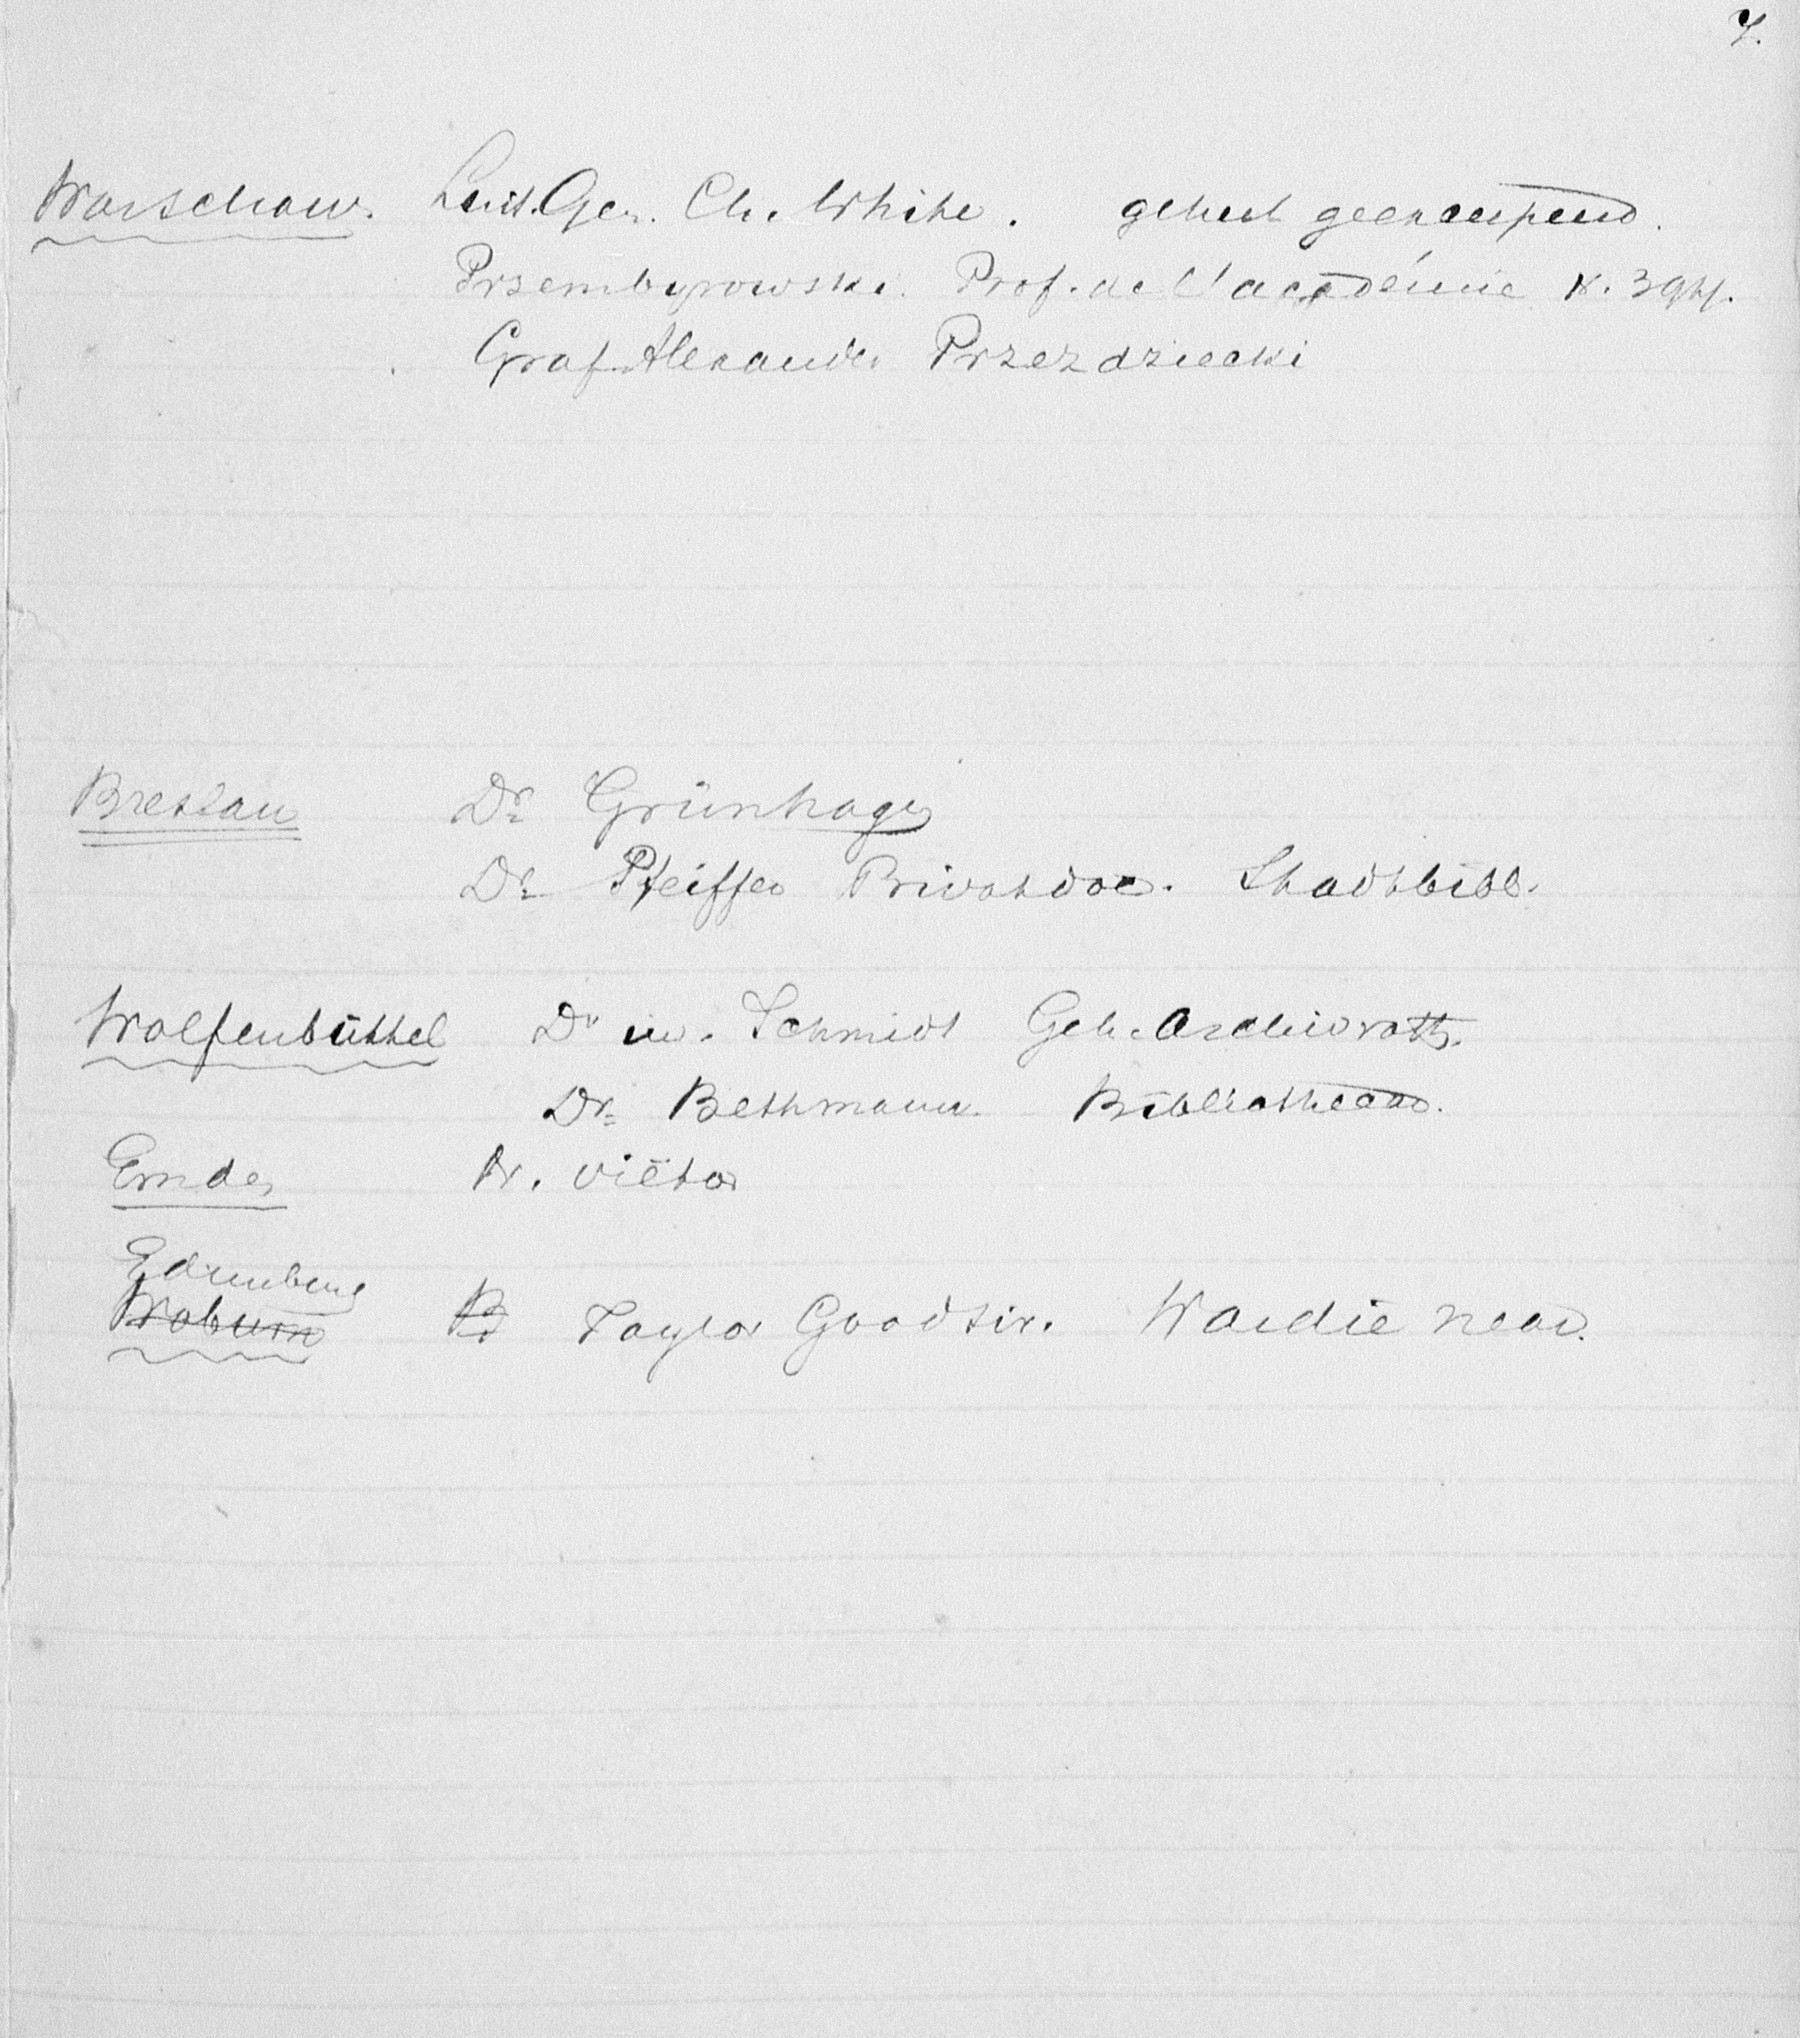 7.
Warschau. Luit. Gen. Ch. White. geheel
Przembyrowski. Prof. de l'académie N. 394.
Graf Alexander Przezdziecki
Breslau Dr Grünhagen
Dr Pfeiffer Privatdoc. Stadtbibl.
Wolfenbüttel Dr W. Schmidt Geh. Archivrath.
Dr. Bethmann. Bibliothecar.
Emden Dr. Viëtor
Edinburg
Woburn Taylor Goodsir. Wardie near.